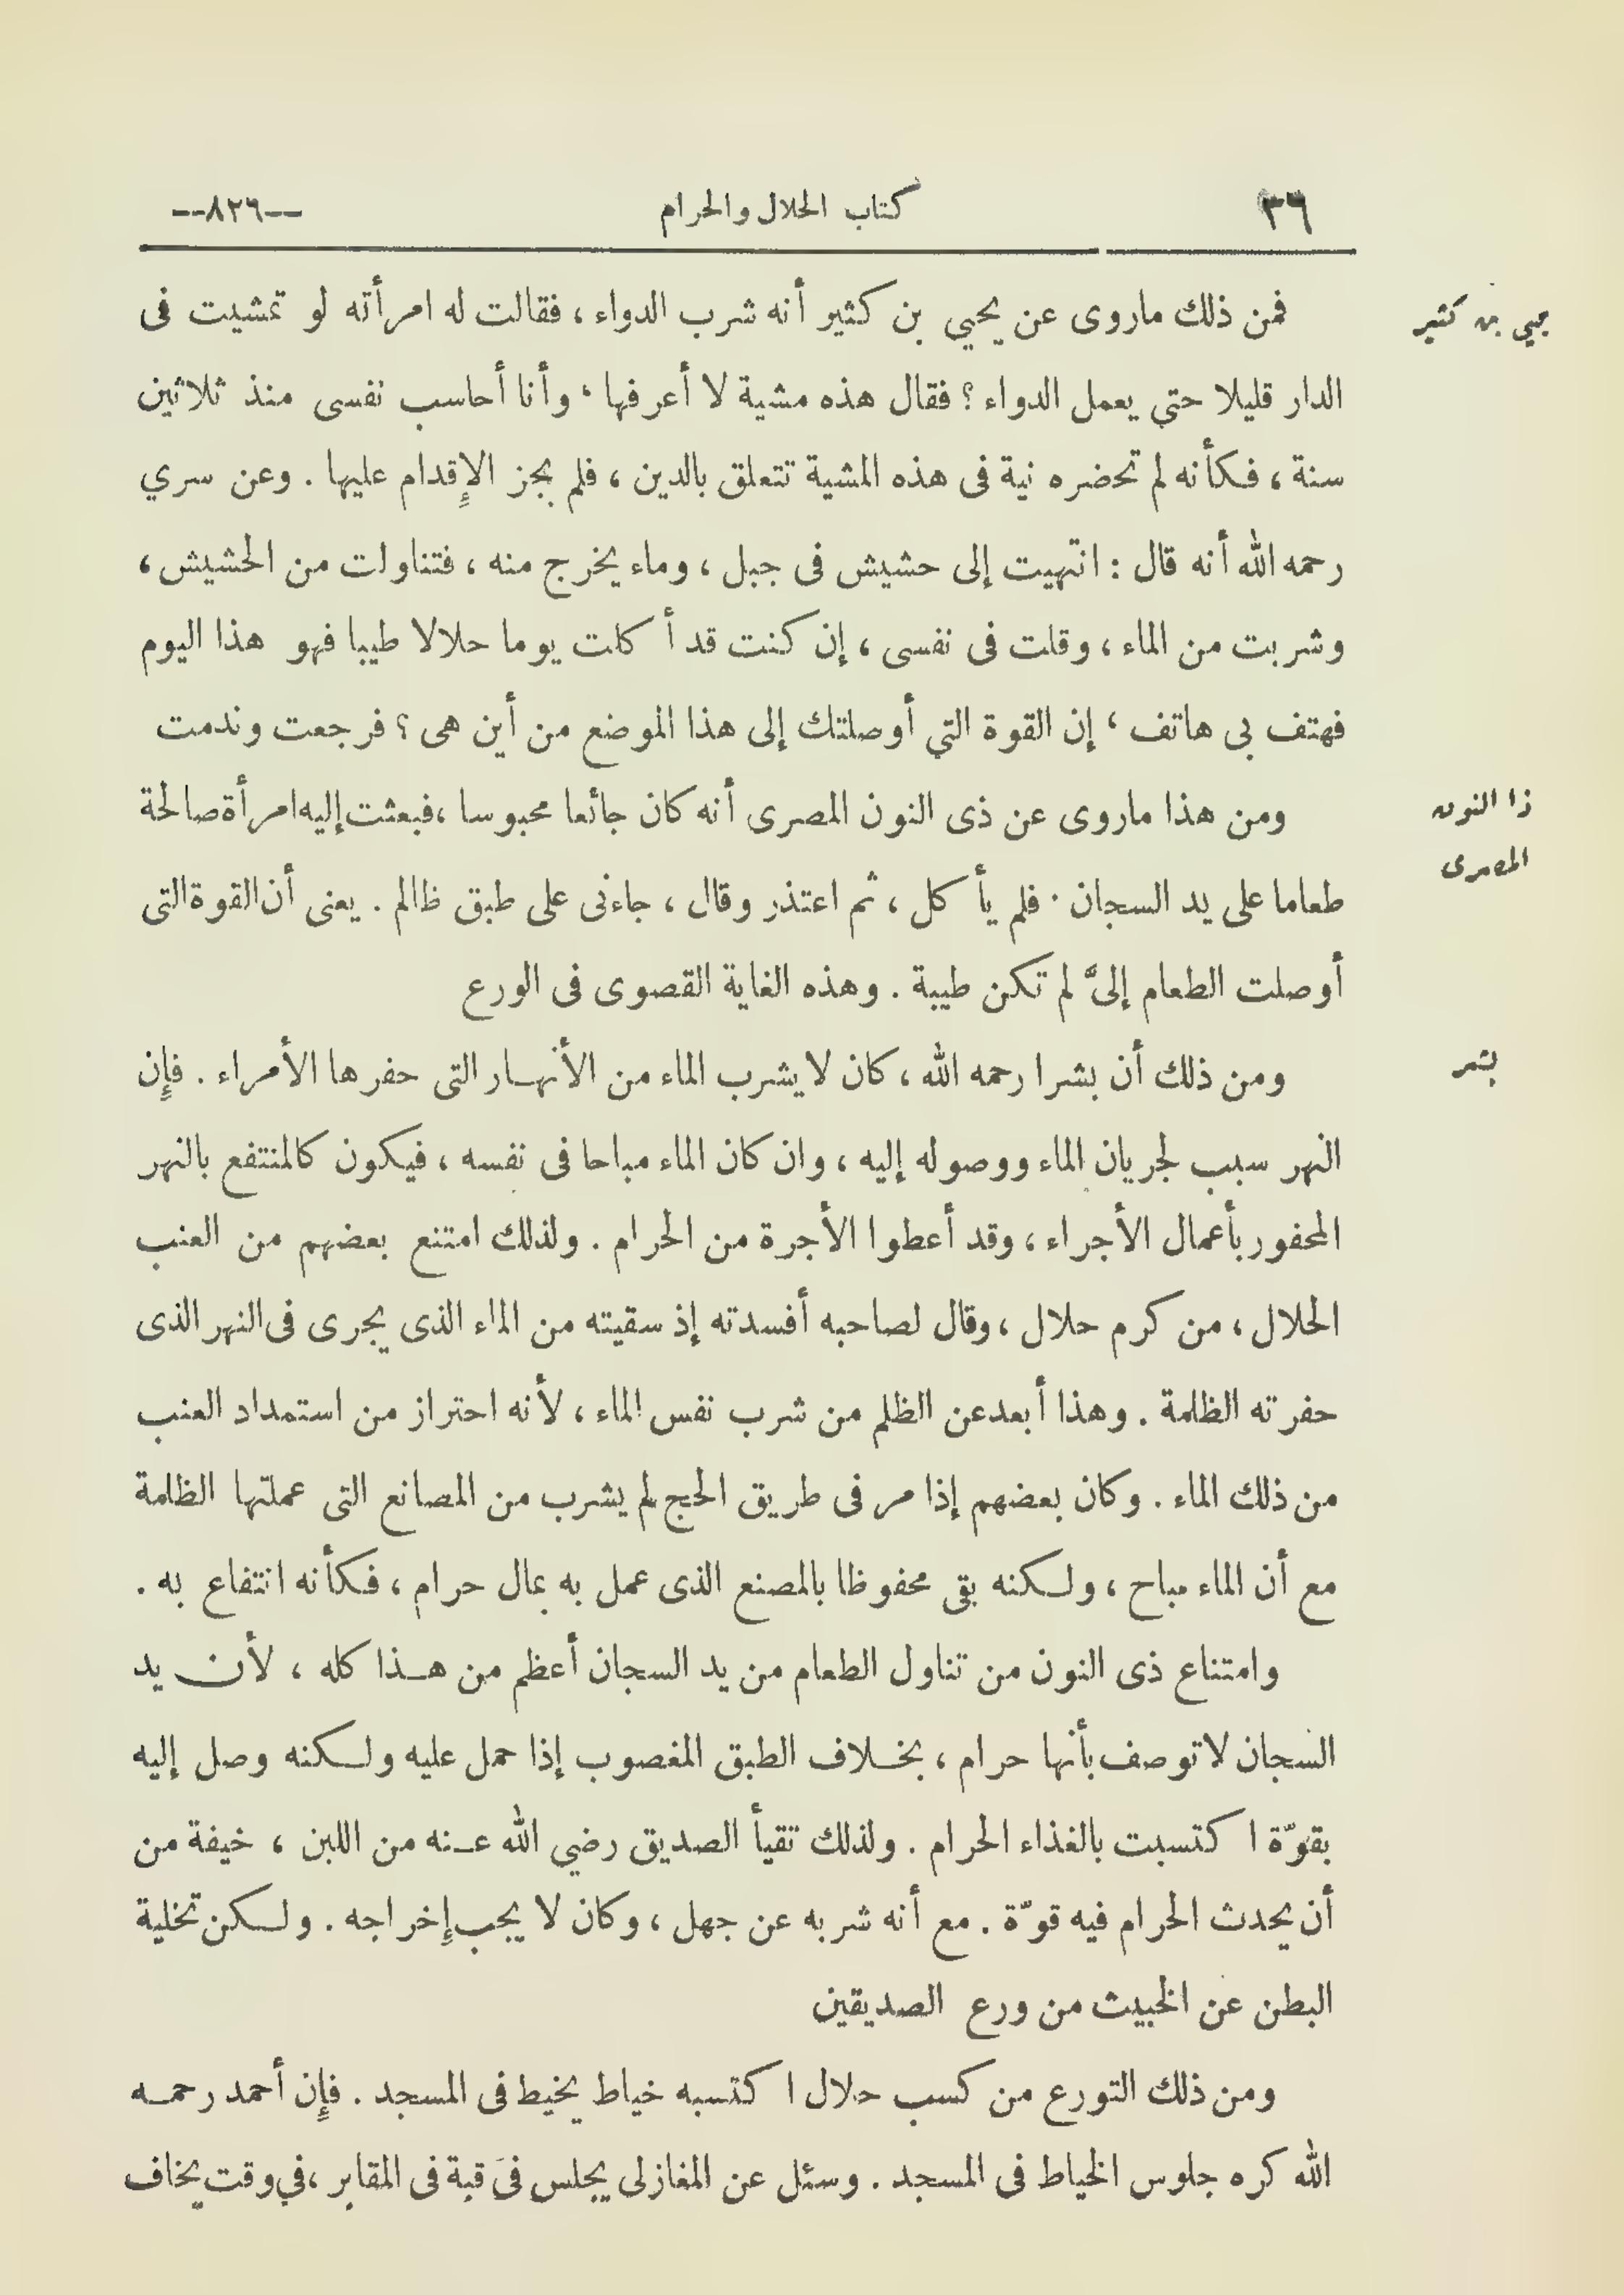 ٣٦ كتاب الحلال والحرام --٨٢٦--
يحيى بن كثير
فمن ذلك ماروى عن يحيي بن كثير أنه شرب الدواء ، فقالت له امرأته لو تمشيت فى
الدار قليلا حتي يعمل الدواء ؟ فقال هذه مشية لا أعرفها ، وأنا أحاسب نفسى منذ ثلاثين
سنة ، فكأنه لم تحضره نية فى هذه المشية تتعلق بالدين ، فلم يجز الإقدام عليها . وعن سري
رحمه الله أنه قال : انتهيت إلى حشيش فى جبل ، وماء يخرج منه ، فتناولت من الحشيش ،
وشربت من الماء ، وقلت فى نفسى ، إن كنت قد أكلت يوما حلالا طيبا فهو هذا اليوم
فهتف بى هاتف ، إن القوة التي أوصلتك إلى هذا الموضع من أين هى ؟ فرجعت وندمت
ذا النون
المصرى
ومن هذا ماروى عن ذى النون المصرى أنه كان جائعا محبوسا ، فبعثت إليه امرأة صالحة
طعاما على يد السجان . فلم يأكل ، ثم اعتذر وقال ، جاءنى على طبق ظالم . يعنى أن القوة التى
أوصلت الطعام إلىَّ لم تكن طيبة . وهذه الغاية القصوى فى الورع
بشر
ومن ذلك أن بشرا رحمه الله ، كان لا يشرب الماء من الأنهار التى حفرها الأمراء . فإن
النهر سبب لجريان الماء ووصوله إليه ، وان كان الماء مباحا فى نفسه ، فيكون كالمنتفع بالنهر
المحفور بأعمال الأجراء ، وقد أعطوا الأجرة من الحرام . ولذلك امتنع بعضهم من العنب
الحلال ، من كرم حلال ، وقال لصاحبه أفسدته إذ سقيته من الماء الذى يجرى فى النهر الذى
حفرته الظلمة . وهذا أبعد عن الظلم من شرب نفس الماء ، لأنه احتراز من استمداد العنب
من ذلك الماء . وكان بعضهم إذا مر فى طريق الحج لم يشرب من المصانع التى عملتها الظلمة
مع أن الماء مباح ، ولكنه بقى محفوظا بالمصنع الذى عمل به بمال حرام ، فكأنه انتفاع به .
وامتناع ذى النون من تناول الطعام من يد السجان أعظم من هذا كله ، لأن يد
السجان لا توصف بأنها حرام ، بخلاف الطبق المغصوب إذا حمل عليه ولكنه وصل إليه
بقوّة اكتسبت بالغذاء الحرام . ولذلك تقيأ الصديق رضي الله عنه من اللبن ، خيفة من
أن يحدث الحرام فيه قوّة . مع أنه شربه عن جهل ، وكان لا يجب إخراجه . ولكن تخلية
البطن عن الخبيث من ورع الصديقين
ومن ذلك التورع من كسب حلال اكتسبه خياط يخيط فى المسجد . فإن أحمد رحمه
الله كره جلوس الخياط فى المسجد . وسئل عن المغازلى يجلس فى قبة فى المقابر ، في وقت يخاف